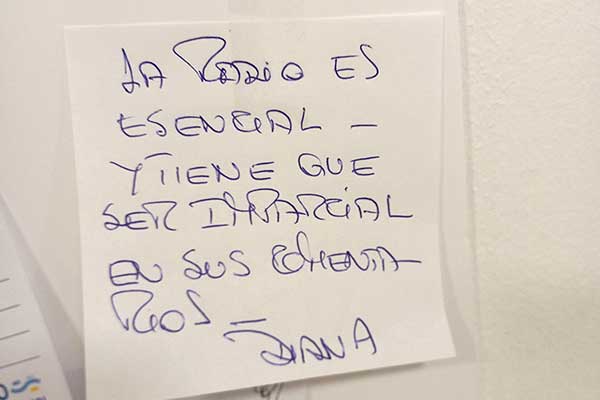 LA RADIO ES
ESENCIAL —
Y TIENE QUE
SER IMPARCIAL
EN SUS COMENTA
RIOS —
DIANA